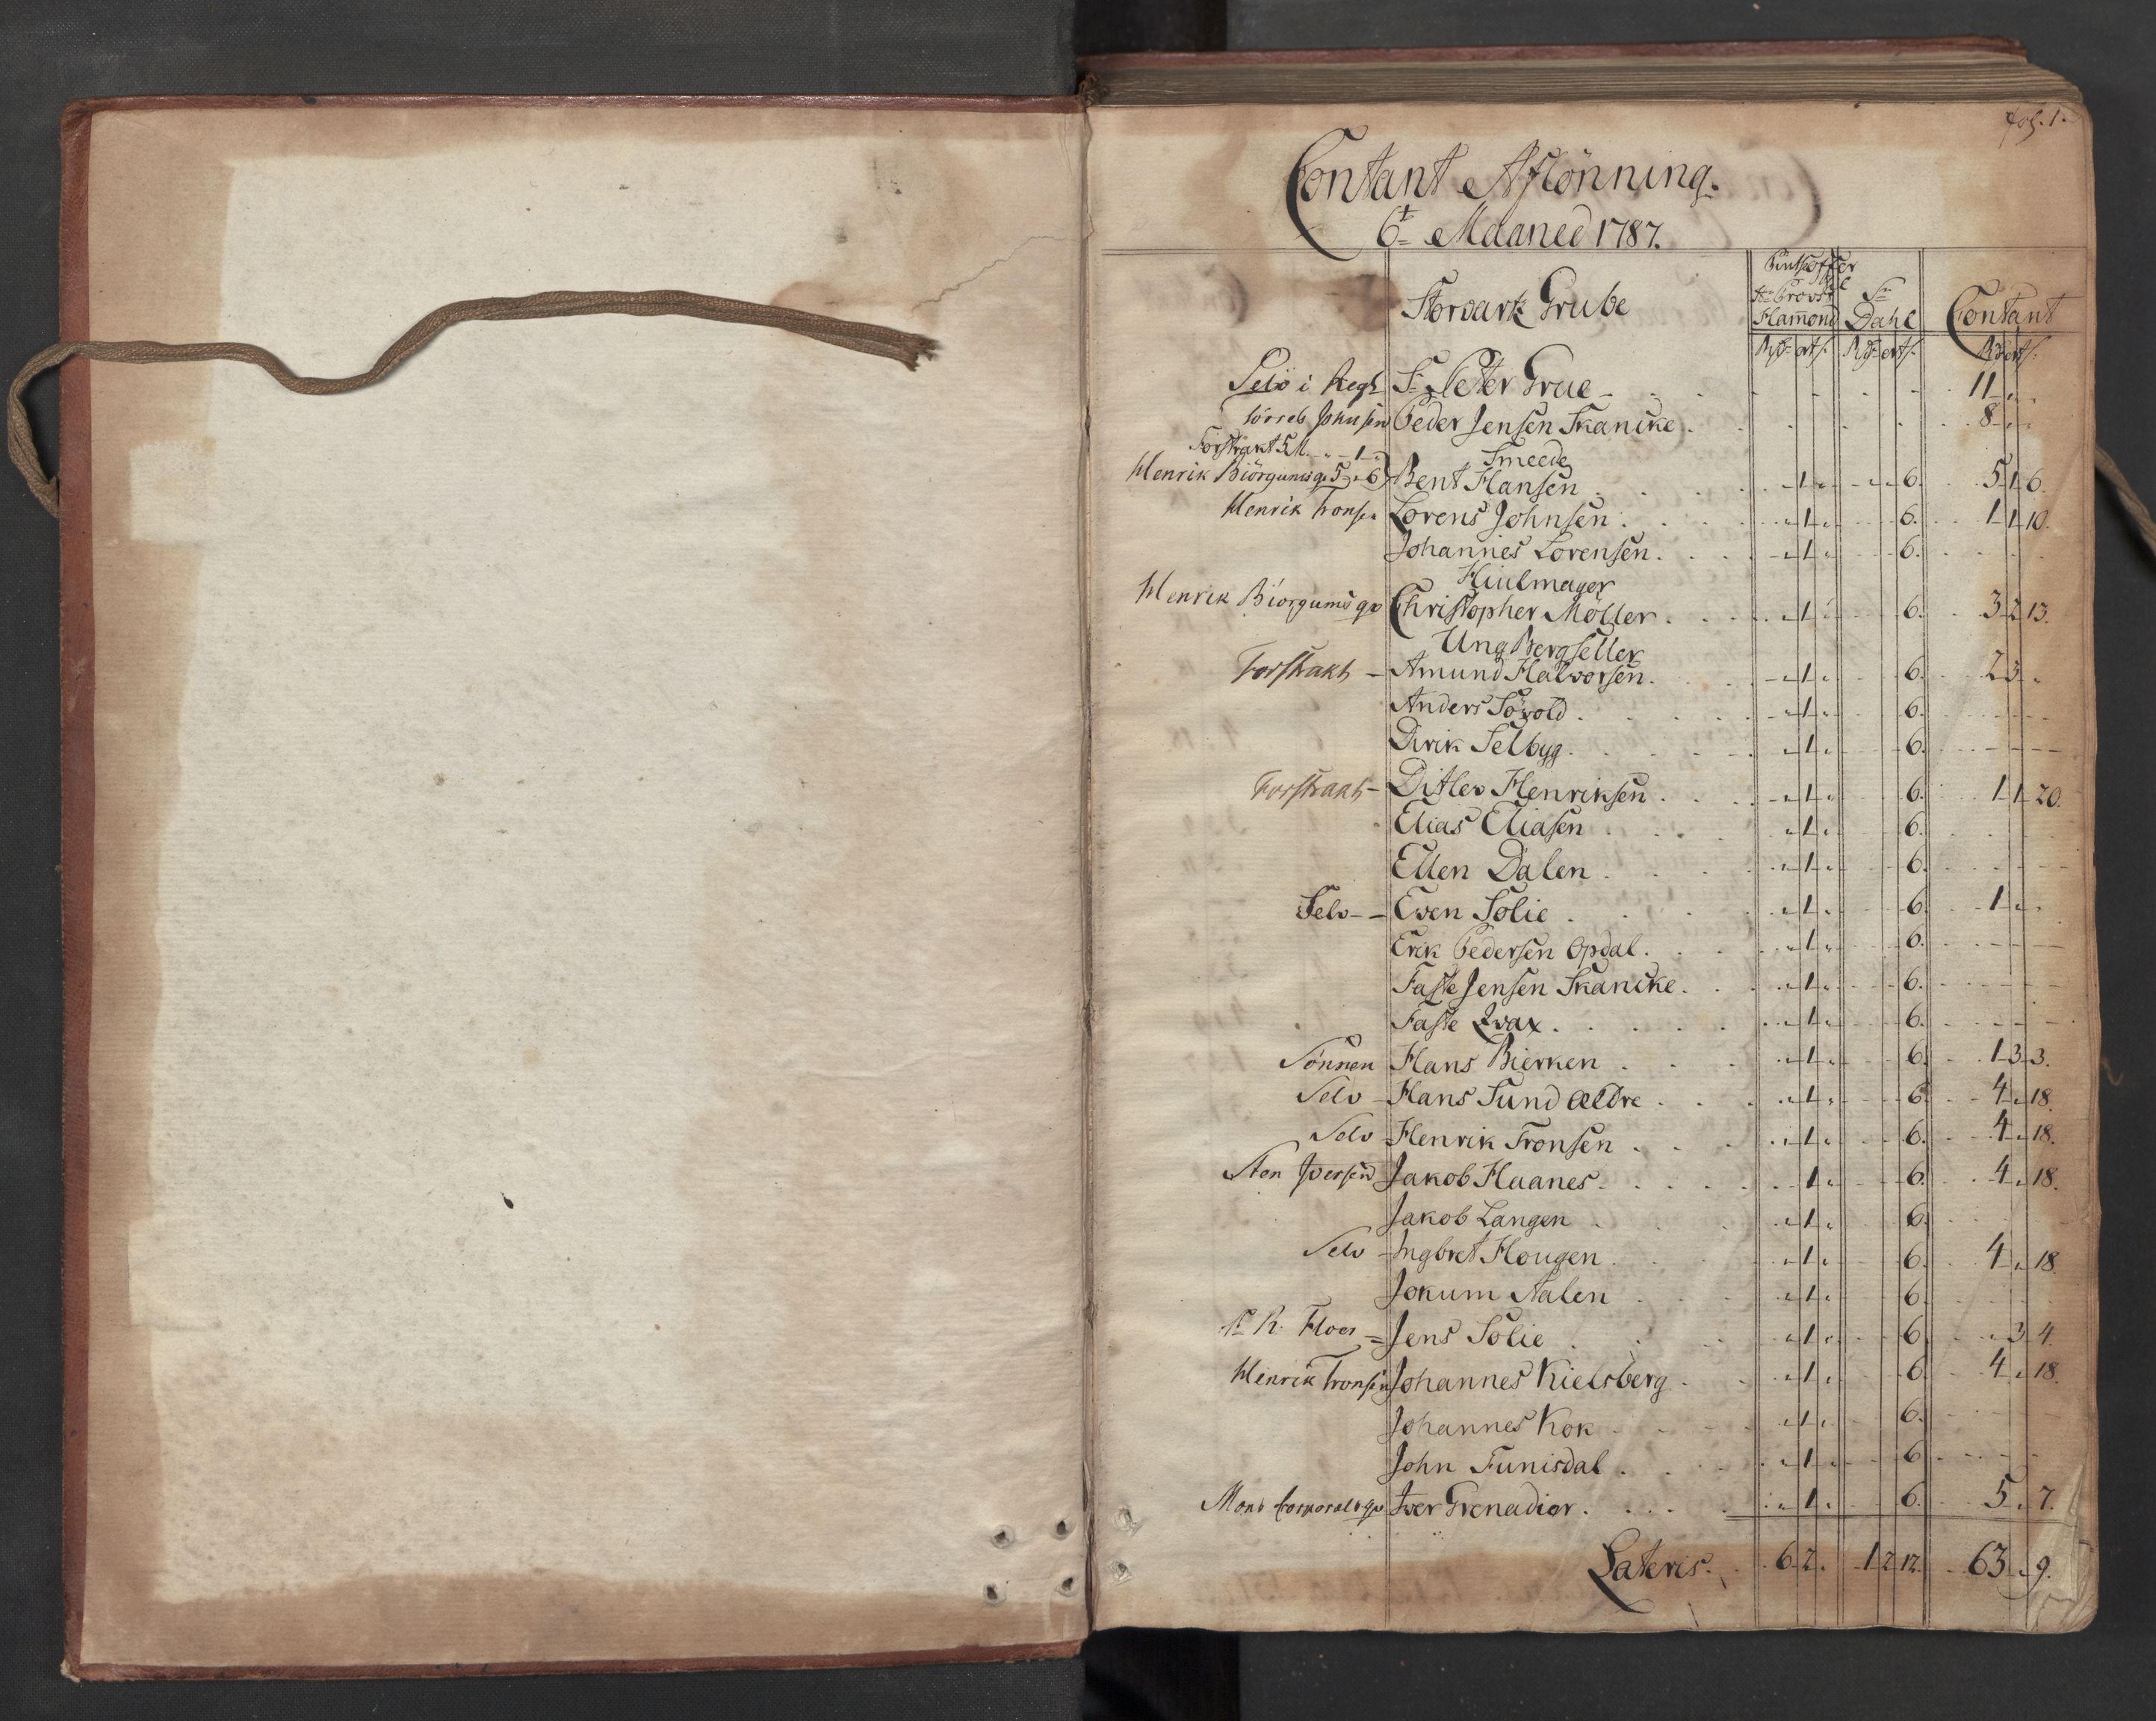 fol. 1.
Contant Aflönning.
6te Maaned 1787.
Storvartz Grube
Hammond Dahl Contant
Rdr ort s. Rdr ort s. Rd ort s.
Selv i Regn Sr Peter Grue - 11 „ „
Peder Jensen Skancke . 8 „ „
Forstrakt 5 M. „ 1 „ Smeede
Henrik Biörgums qv 5 „ 6 Bent Hansen . „ 1 „ 6. 5 1 6.
Henrik Tronsen Lorens Johnsen . „ 1 „ 6. 1 1 10.
Johannes Lorensen . „ 1 „ 6.
Hiulmager
Henrik Biorgums qv Christopher Möller . 1 „ 6. 3 2 13.
Ung Bergseller
Forstrakt - Amund Halvorsen . „ 1 „ 6. 2 3 „
Anders Sövold . „ 1 „ 6.
Dirik Selbyg . „ 1 „ 6.
Forstrakt - Ditlev Henriksen . „ 1 „ 6. 1 1 20.
Elias Eliasen . „ 1 „ 6.
Ellen Dalen . „ 1 „ 6.
Selv - Even Solie . „ 1 „ 6. 1 „ „
Erik Pedersen Opdal . „ 1 „ 6.
Faste Jensen Skancke . „ 1 „ 6.
Faste Qvax . „ 1 „ 6.
Sönnen Hans Bierken . „ 1 „ 6. 1 3 3.
Selv - Hans Sund Ældre . „ 1 „ 6. 4 „ 18.
Selv - Henrik Tronsen . „ 1 „ 6. 4 „ 18.
Sten Iversen Jakob Haanes . „ 1 „ 6. 4 „ 18.
Jakob Langen . „ 1 „ 6.
Selv - Ingbret Hougen . „ 1 „ 6. 4 „ 18.
Jokum Aalen . „ 1 „ 6.
Sr R. Floer = Jens Solie . „ 1 „ 6. „ 3 4.
Henrik Tronsen Johannes Kielsberg . „ 1 „ 6. 4 „ 18.
Johannes Kok „ 1 „ 6.
John Funisdal . „ 1 „ 6.
Mons Corporals qv Iver Grenadier . „ 1 „ 6. 5 „ 7.
Lateris . 6 2 „ 1 2 12. 63 „ 9.